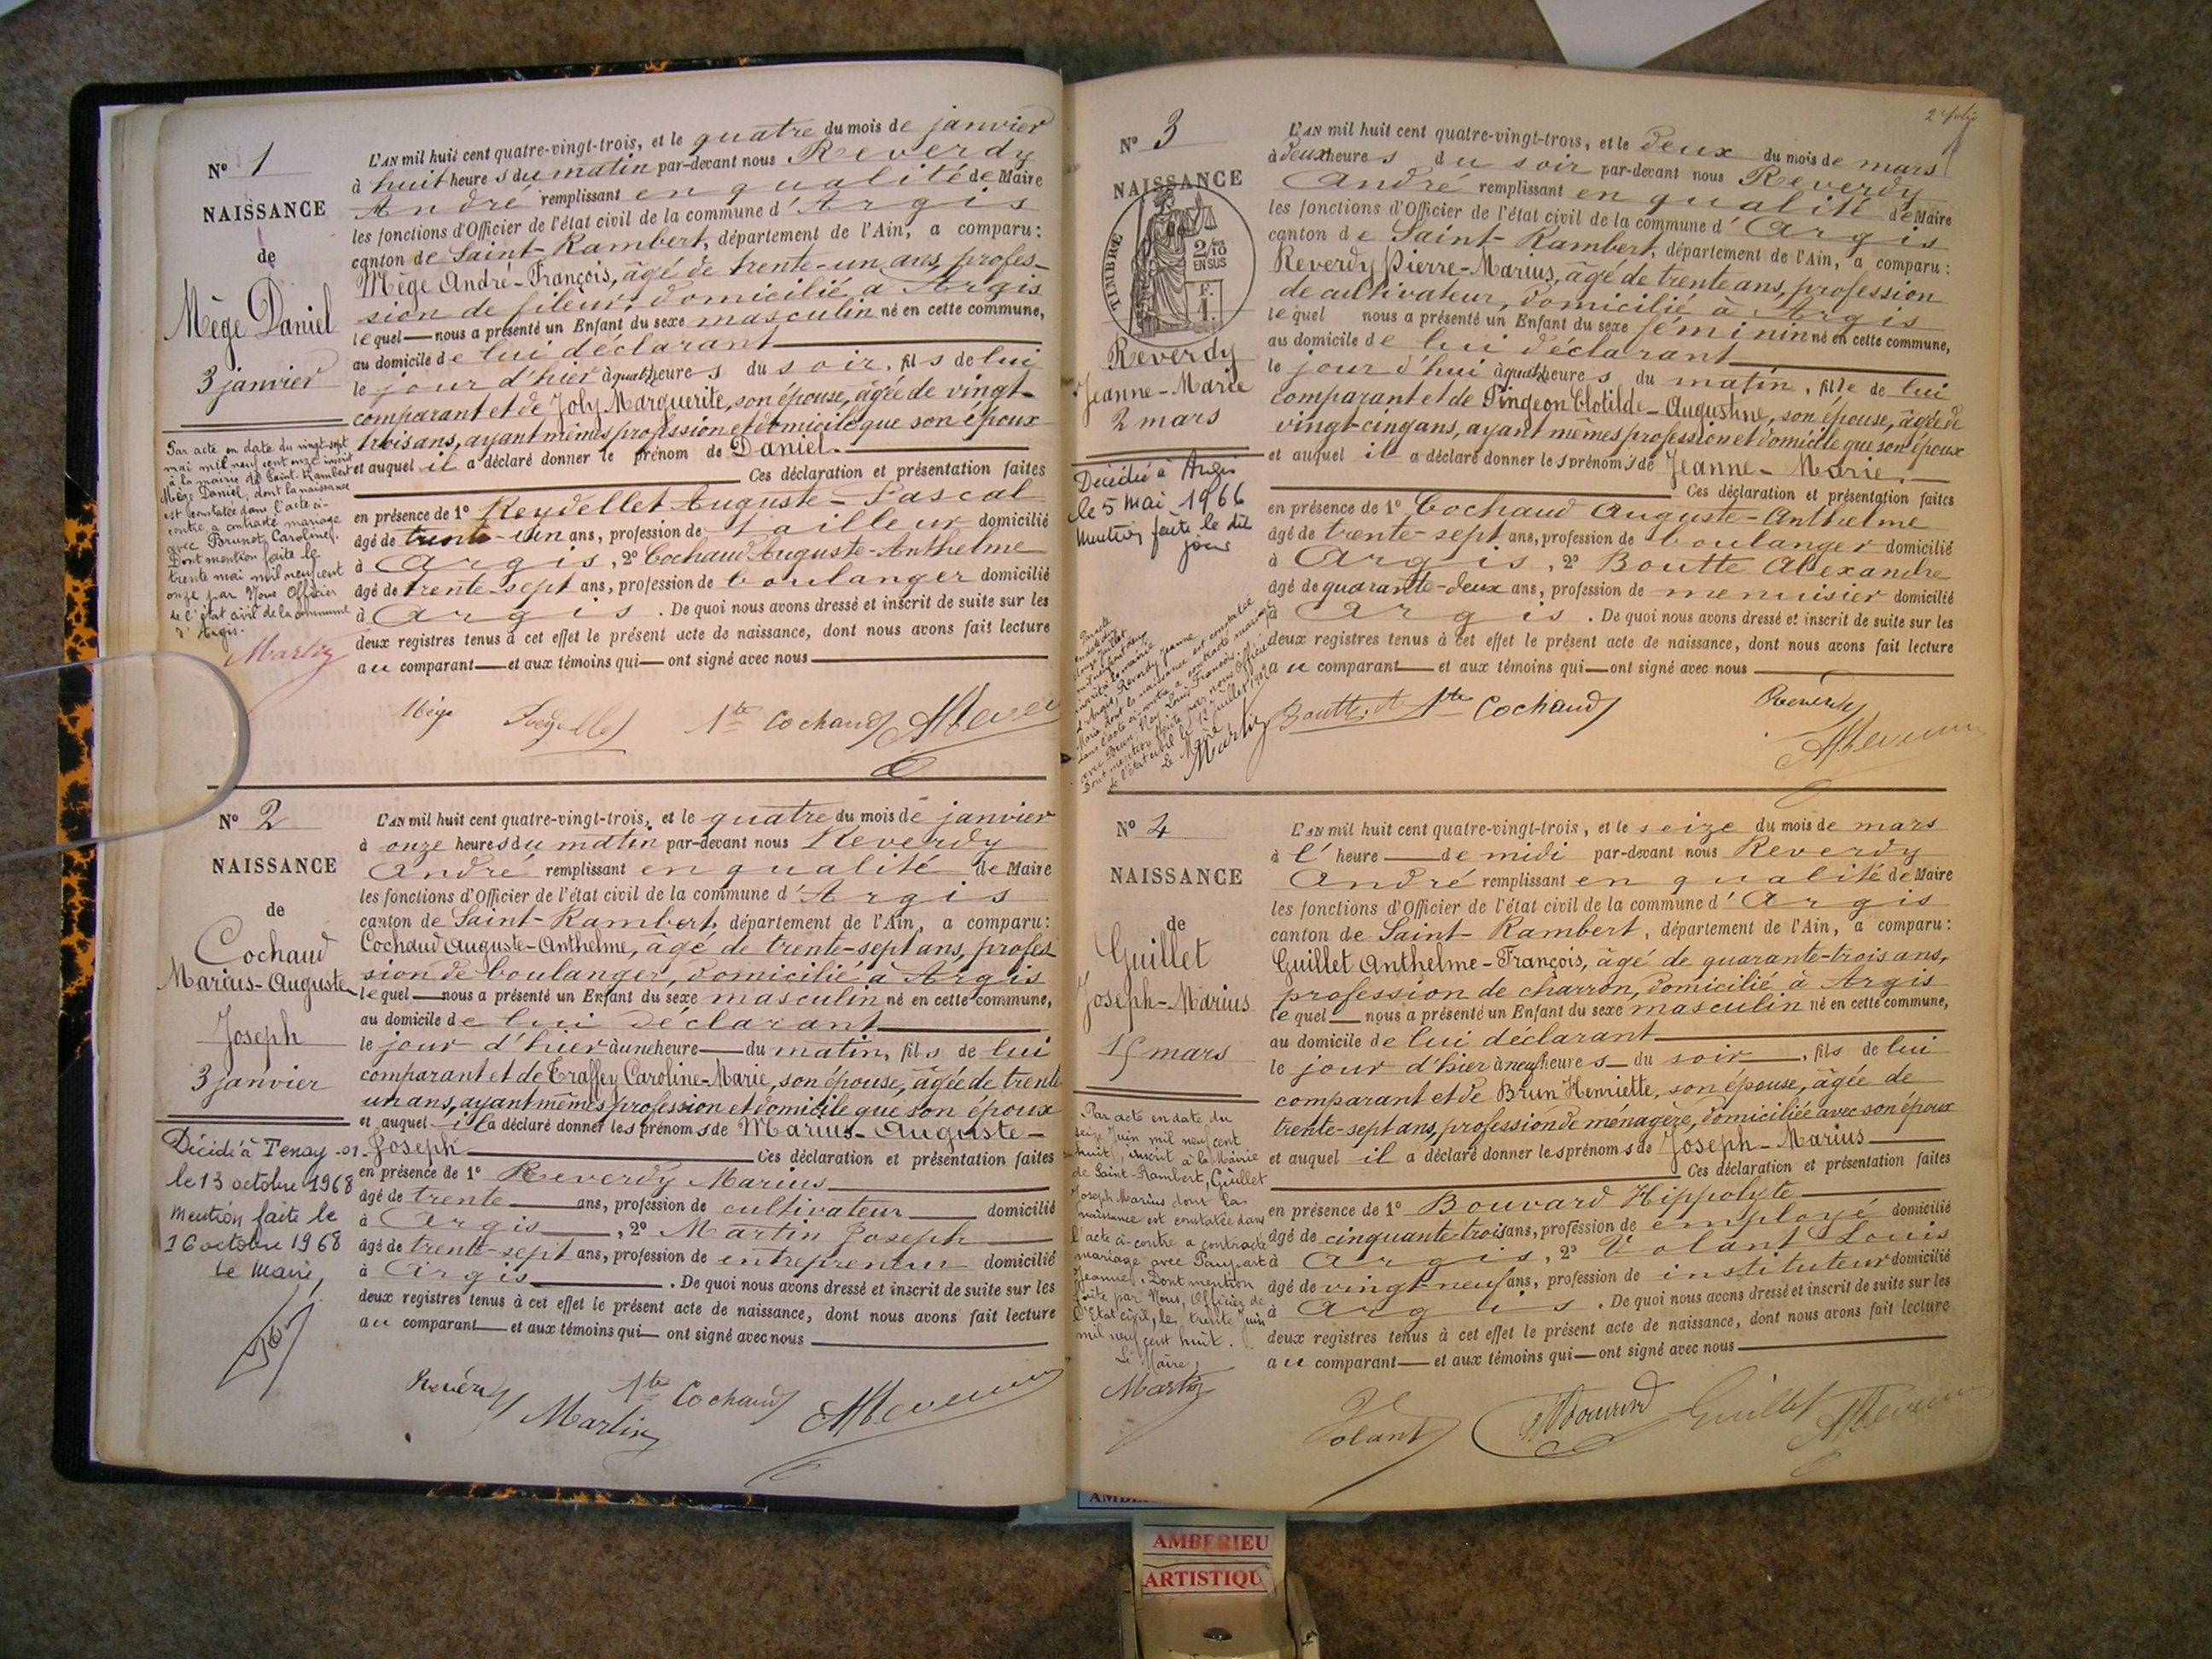 N° 1
NAISSANCE
de
Mège Daniel
3 janvier
Par acte en date du vingt-sept
mai mil neuf cent onze inscrit
à la mairie de Saint-Rambert
Mège Daniel, dont la naissance
est constatée dans l'acte ci-
contre a contracté mariage
avec Brunet Caroline.
Dont mention faite le
trente mai mil neuf cent
onze par Nous Officier
de l'état civil de la commune
d'Argis.
Martin
L'AN mil huit cent quatre-vingt-trois, et le quatre du mois de janvier
à huit heures du matin par-devant nous Reverdy
André remplissant en qualité de Maire
les fonctions d'Officier de l'état civil de la commune d'Argis
canton de Saint-Rambert, département de l'Ain, a comparu :
Mège André-François, âgé de trente-un ans, profes-
sion de fileur, domicilié à Argis
lequel nous a présenté un Enfant du sexe masculin né en cette commune,
au domicile de lui déclarant
le jour d'hier à quatre heures du soir, fils de lui
comparant et de Joly Marguerite, son épouse, âgée de vingt-
trois ans, ayant mêmes profession et domicile que son époux
et auquel il a déclaré donner le prénom de Daniel.
Ces déclaration et présentation faites
en présence de 1° Reydellet Auguste-Pascal
âgé de trente-un ans, profession de tailleur domicilié
à Argis, 2° Cochaud Auguste-Anthelme
âgé de trente-sept ans, profession de boulanger domicilié
à Argis. De quoi nous avons dressé et inscrit de suite sur les
deux registres tenus à cet effet le présent acte de naissance, dont nous avons fait lecture
au comparant et aux témoins qui ont signé avec nous
Mège Cochaud
N° 2
NAISSANCE
de
Cochaud
Marius-Auguste-
Joseph
3 janvier
Décédé à Tenay -01-
le 13 octobre 1968
mention faite le
16 octobre 1968
Le Maire,
L'AN mil huit cent quatre-vingt-trois, et le quatre du mois de janvier
à onze heures du matin par-devant nous Reverdy
André remplissant en qualité de Maire
les fonctions d'Officier de l'état civil de la commune d'Argis
canton de Saint-Rambert, département de l'Ain, a comparu :
Cochaud Auguste-Anthelme, âgé de trente-sept ans, profes-
sion de boulanger, domicilié à Argis
lequel nous a présenté un Enfant du sexe masculin né en cette commune,
au domicile de lui déclarant
le jour d'hier à une heure du matin, fils de lui
comparant et de Traffey Caroline-Marie, son épouse, âgée de trente
un ans, ayant mêmes profession et domicile que son époux
et auquel il a déclaré donner les prénoms de Marius-Auguste-
Joseph
Ces déclaration et présentation faites
en présence de 1° Reverdy Marius
âgé de trente ans, profession de cultivateur domicilié
à Argis, 2° Martin Joseph
âgé de trente-sept ans, profession de entrepreneur domicilié
à Argis. De quoi nous avons dressé et inscrit de suite sur les
deux registres tenus à cet effet le présent acte de naissance, dont nous avons fait lecture
au comparant et aux témoins qui ont signé avec nous
Martin Cochaud
N° 3
NAISSANCE
TIMBRE
2/10
EN SUS
F.
1.
Reverdy
Jeanne-Marie
2 mars
Décédée à Argis
le 5 mai 1966
Mention faite le dit
jour
Le Maire
Martin
L'AN mil huit cent quatre-vingt-trois, et le deux du mois de mars
à deux heures du soir par-devant nous Reverdy
André remplissant en qualité de Maire
les fonctions d'Officier de l'état civil de la commune d'Argis
canton de Saint-Rambert, département de l'Ain, a comparu :
Reverdy Pierre-Marius, âgé de trente ans, profession
de cultivateur, domicilié à Argis
lequel nous a présenté un Enfant du sexe féminin né en cette commune,
au domicile de lui déclarant
le jour d'hui à quatre heures du matin, fille de lui
comparant et de Pingeon Clotilde-Augustine, son épouse, âgée de
vingt-cinq ans, ayant mêmes profession et domicile que son époux
et auquel il a déclaré donner les prénoms de Jeanne-Marie.
Ces déclaration et présentation faites
en présence de 1° Cochaud Auguste-Anthelme
âgé de trente-sept ans, profession de boulanger domicilié
à Argis, 2° Boutte Alexandre
âgé de quarante-deux ans, profession de menuisier domicilié
à Argis. De quoi nous avons dressé et inscrit de suite sur les
deux registres tenus à cet effet le présent acte de naissance, dont nous avons fait lecture
au comparant et aux témoins qui ont signé avec nous
Boutte A Cochaud
N° 4
NAISSANCE
de
Guillet
Joseph-Marius
15 mars
Par acte en date du
seize Juin mil neuf cent
huit, inscrit à la Mairie
de Saint-Rambert, Guillet
Joseph Marius dont la
naissance est constatée dans
l'acte ci-contre a contracté
mariage avec
Jeanne. Dont mention
faite par Nous, Officier de
l'Etat civil, le trente Juin
mil neuf cent huit.
Le Maire,
Martin
L'AN mil huit cent quatre-vingt-trois, et le seize du mois de mars
à l'heure de midi par-devant nous Reverdy
André remplissant en qualité de Maire
les fonctions d'Officier de l'état civil de la commune d'Argis
canton de Saint-Rambert, département de l'Ain, a comparu :
Guillet Anthelme-François, âgé de quarante-trois ans,
profession de charron, domicilié à Argis
lequel nous a présenté un Enfant du sexe masculin né en cette commune,
au domicile de lui déclarant
le jour d'hier à neuf heures du soir, fils de lui
comparant et de Brun Henriette, son épouse, âgée de
trente-sept ans, profession de ménagère, domiciliée avec son époux
et auquel il a déclaré donner les prénoms de Joseph-Marius
Ces déclaration et présentation faites
en présence de 1° Bouvard Hippolyte
âgé de cinquante-trois ans, profession de employé domicilié
à Argis, 2° Volant Louis
âgé de vingt-neuf ans, profession de instituteur domicilié
à Argis. De quoi nous avons dressé et inscrit de suite sur les
deux registres tenus à cet effet le présent acte de naissance, dont nous avons fait lecture
au comparant et aux témoins qui ont signé avec nous
Volant Bouvard Guillet
AMBERIEU
ARTISTIQU